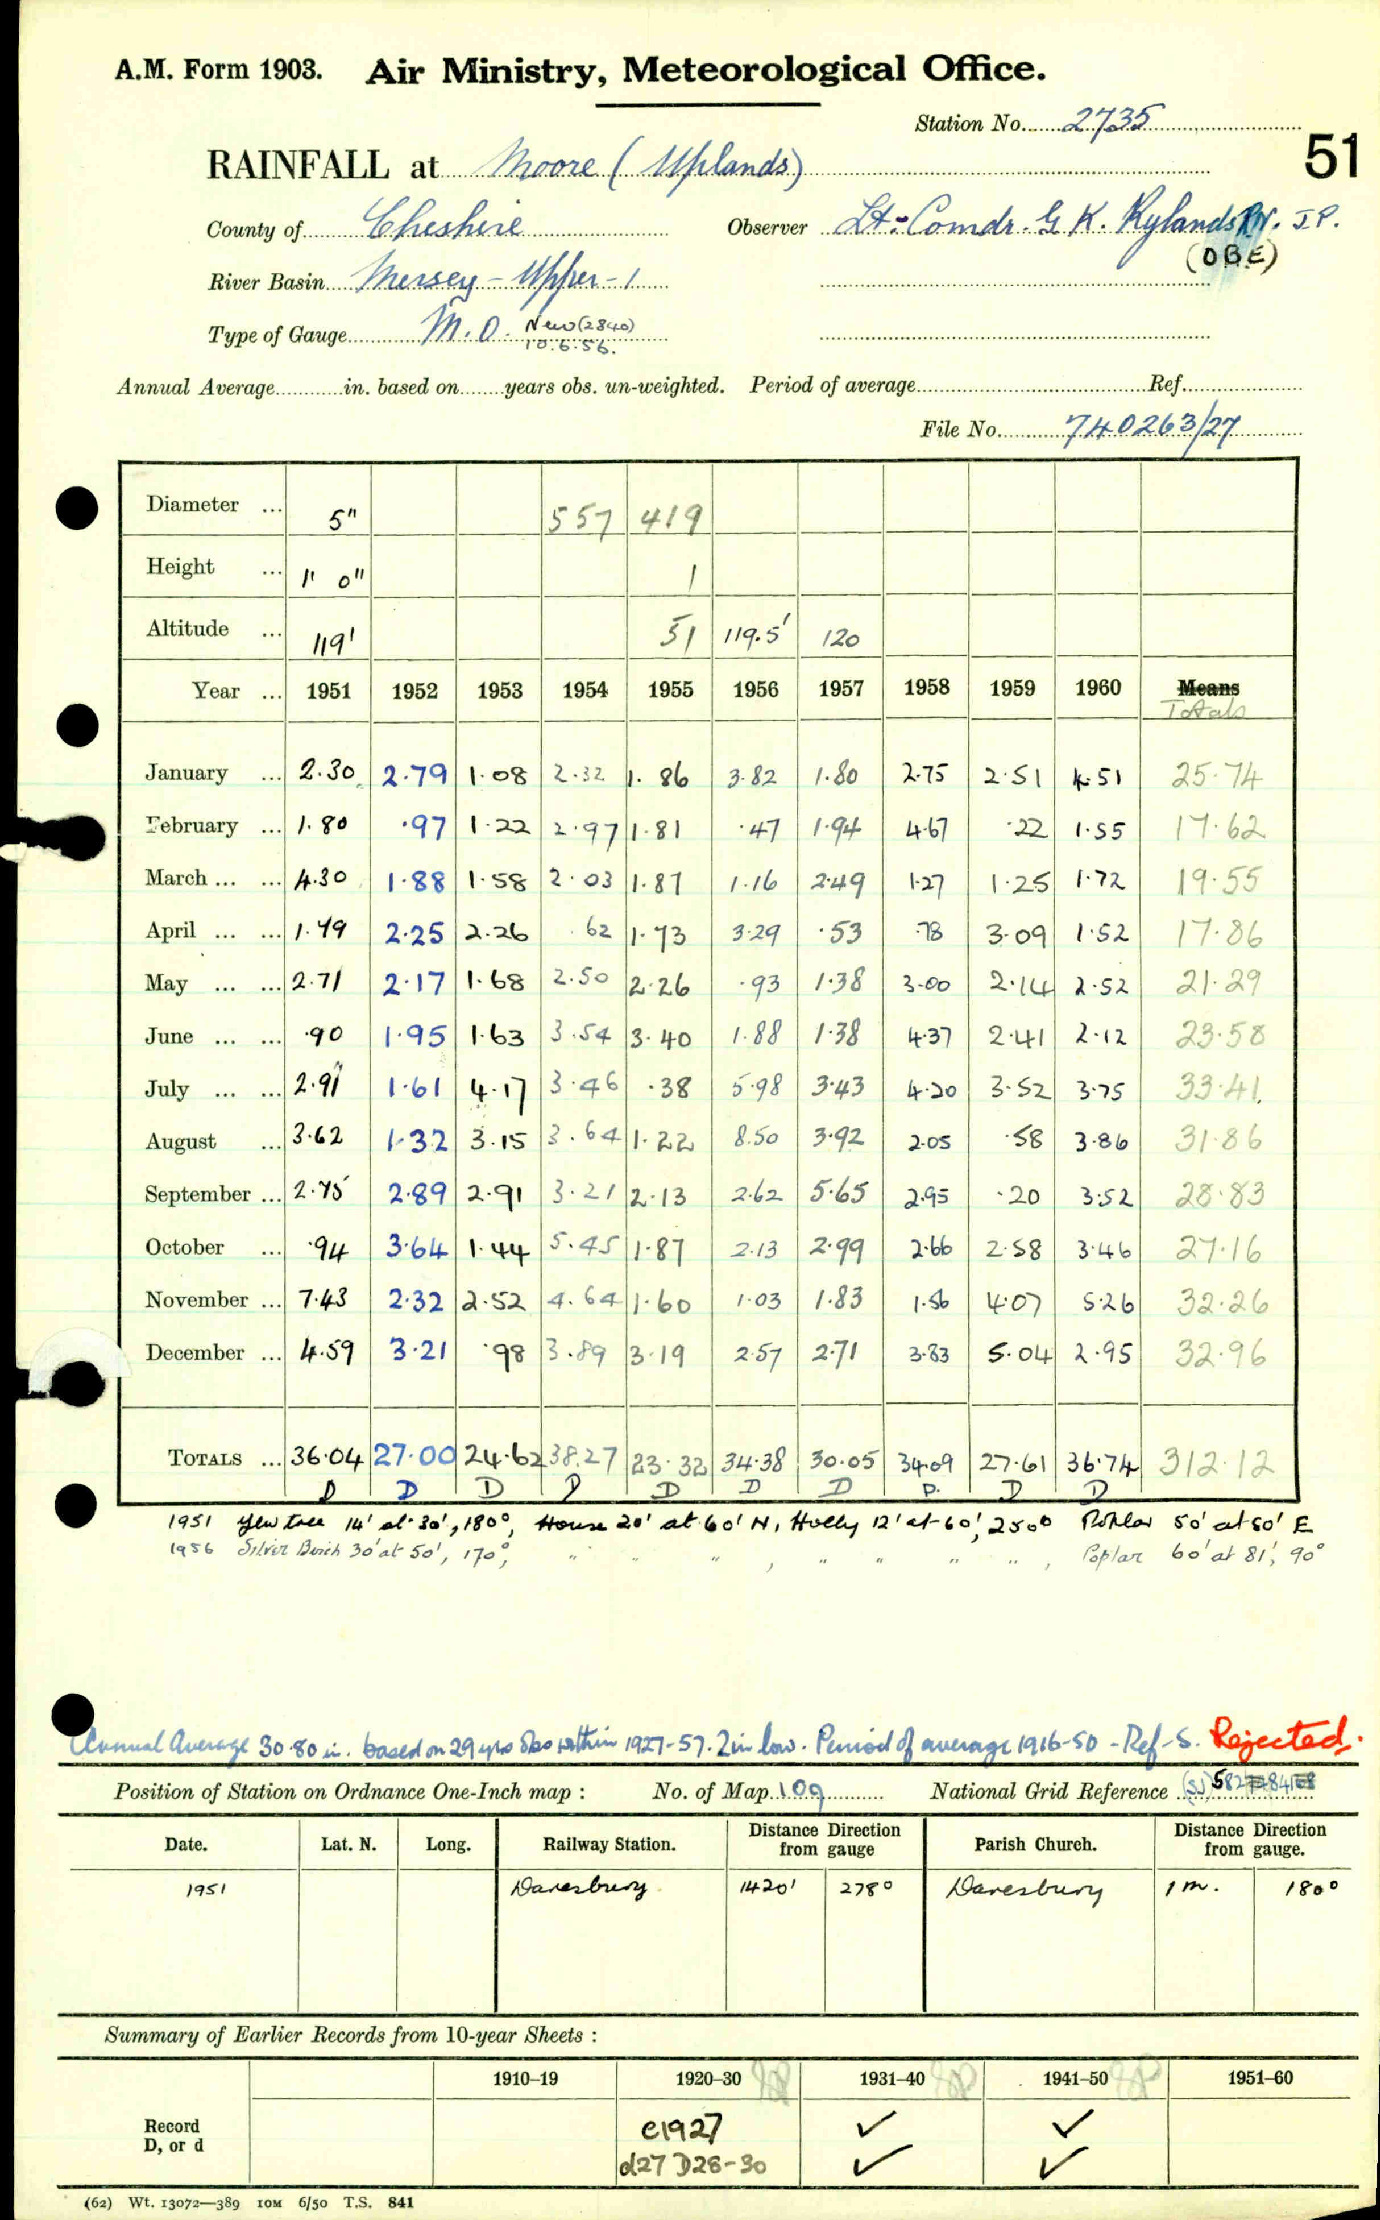 A.M. Form 1903. Air Ministry, Meteorological Office.
Station No. 2735
51
RAINFALL at Moore (Uplands)
County of Cheshire Observer Lt-Comdr. G K. Rylands R.N. J.P.
(OBE)
River Basin Mersey - Upper - 1
Type of Gauge M.O. New (2840)
10.6.56.
Annual Average in. based on years obs. un-weighted. Period of average Ref.
File No. 740263/27
Diameter ... 5" 557 419
Height ... 1' 0" 1
Altitude ... 119' 51 119.5' 120
Year ... 1951 1952 1953 1954 1955 1956 1957 1958 1959 1960 Means
Totals
January ... 2.30 2.79 1.08 2.32 1.86 3.82 1.80 2.75 2.51 4.51 25.74
February ... 1.80 .97 1.22 2.97 1.81 .47 1.94 4.67 .22 1.55 17.62
March ... ... 4.30 1.88 1.58 2.03 1.87 1.16 2.49 1.27 1.25 1.72 19.55
April ... ... 1.79 2.25 2.26 .62 1.73 3.29 .53 .78 3.09 1.52 17.86
May ... ... 2.71 2.17 1.68 2.50 2.26 .93 1.38 3.00 2.14 2.52 21.29
June ... ... .90 1.95 1.63 3.54 3.40 1.88 1.38 4.37 2.41 2.12 23.58
July ... ... 2.91 1.61 4.17 3.46 .38 5.98 3.43 4.20 3.52 3.75 33.41
August ... 3.62 1.32 3.15 3.64 1.22 8.50 3.92 2.05 .58 3.86 31.86
September ... 2.75 2.89 2.91 3.21 2.13 2.62 5.65 2.95 .20 3.52 28.83
October ... .94 3.64 1.44 5.45 1.87 2.13 2.99 2.66 2.58 3.46 27.16
November ... 7.43 2.32 2.52 4.64 1.60 1.03 1.83 1.56 4.07 5.26 32.26
December ... 4.59 3.21 .98 3.89 3.19 2.57 2.71 3.83 5.04 2.95 32.96
TOTALS ... 36.04 27.00 24.62 38.27 23.32 34.38 30.05 34.09 27.61 36.74 312.12
D D D D D D D D. D D
1951 Yew tree 14' at 30', 180°, House 20' at 60' N, Holly 12' at 60', 250° Poplar 50' at 80' E
1956 Silver Birch 30' at 50', 170°, " " " " , " " " " , Poplar 60' at 81', 90°
Annual Average 30.80 in. based on 29 yrs obs within 1927-57. 2 in low. Period of average 1916-50 - Ref - S. Rejected.
Position of Station on Ordnance One-Inch map : No. of Map 109 National Grid Reference (SJ) 582 841
Date. Lat. N. Long. Railway Station. Distance from Direction gauge Parish Church. Distance from Direction gauge.
1951 Daresbury 1420' 278° Daresbury 1 m. 180°
Summary of Earlier Records from 10-year Sheets :
1910–19 1920–30 1931–40 1941–50 1951–60
Record e1927 ✓ ✓
D, or d d27 D28-30 ✓ ✓
(62) Wt. 13072—389 10M 6/50 T.S. 841